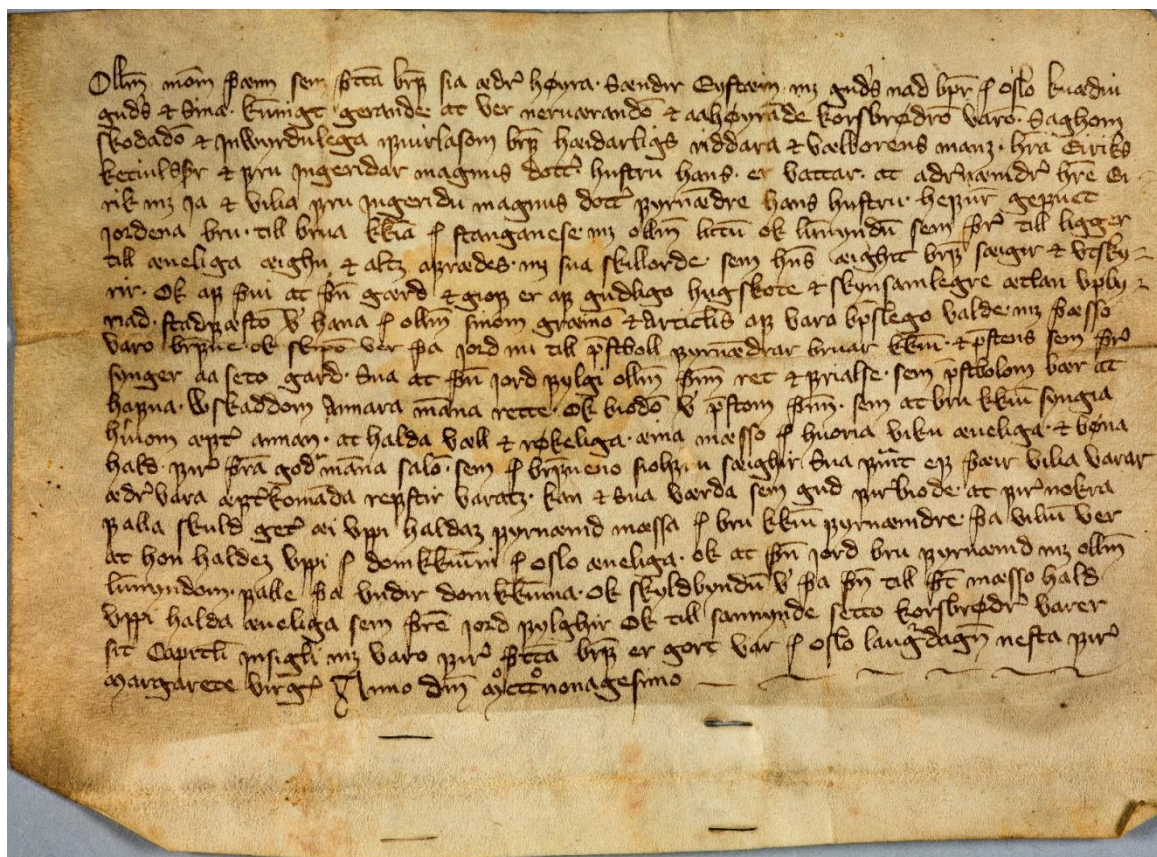 Ollm̄ mōm þæim sem þtta bref sia ædr høyra. Sændir Eysteinn mz guds nad bpr j oslo kuædiu
guds & sina. kunnigt gerande at ver neruarandō & aahøyrāde korsbrødrō varō. Saghom
skodadō & jnwyrdulega ifuirlasom bref hæidarligs riddara & vælborens manz. hræ Eiriks
ketiulsþr & fru jngeridar magnus dottr hustru hans. er vattar. at adrnæmdr hre Ei
rik mz ja & vilia fru jngeridu magnus dottr fyrnæmdre hans hustru. hefuir gefuet
jordena bru. till brua kkiu j stanganese. mz ollm̄ lutū ok lūnyndū sem þr till ligger
till æueliga æighu & altz afrædes. mz sua skillorde. sem hns æighit bref sæigir & vtsky-
rir. Ok af þui at þn gærd & giof er af gudligo hugskote & skynsamlegre ætlan vply-
riad. stadfæstō v hana j ollm̄ sinom græinō & articlis af varo bpslego valde. mz þæsso
varo brefue. ok skipō ver þa jord nu till pstboll fyrnæmdrar bruar kkiu. & pstens sem þr
synger aa seto gard. Sua at þn jord fylgi ollm̄ þm ret & frialse. sem pstbolom bær at
hafua. wskaddom annara māna rette. Ok biodō v pstom þm. sem at bru kkiu syngia
huōm æptr annan. at halda væll & røkeliga. æina mæsso j huoria viku æueliga. & bøna
hald. fir þra godra māna salō. sem j brefueno siolfu sæighir. Sua framt ef þæir vilia varar
ædr vara æptrkomāda refstir varatz. kan & sua værda sem gud firbiode. at fir nokra
palla skuld getr æi vppi haldaz fyrnæmd mæssa j bru kkiu fyrnæmdre. þa vilium ver
at hon haldez vppi j domkkiūni j oslo æueliga. ok at þn jord bru fyrnæmd mz ollm̄
lūnyndom. falle þa vndir domkkiūna. Ok skyldbyndū v þa þn till þt mæsso hald
vppi halda æueliga sem þre jord fylghir Ok till sannynde setto korsbrødr varer
sit Capitli jnsigli mz varo fir þtta bref er gort var j oslo laugdagn nesta fir
Margarete virgis Anno dni mcccnonagesimo